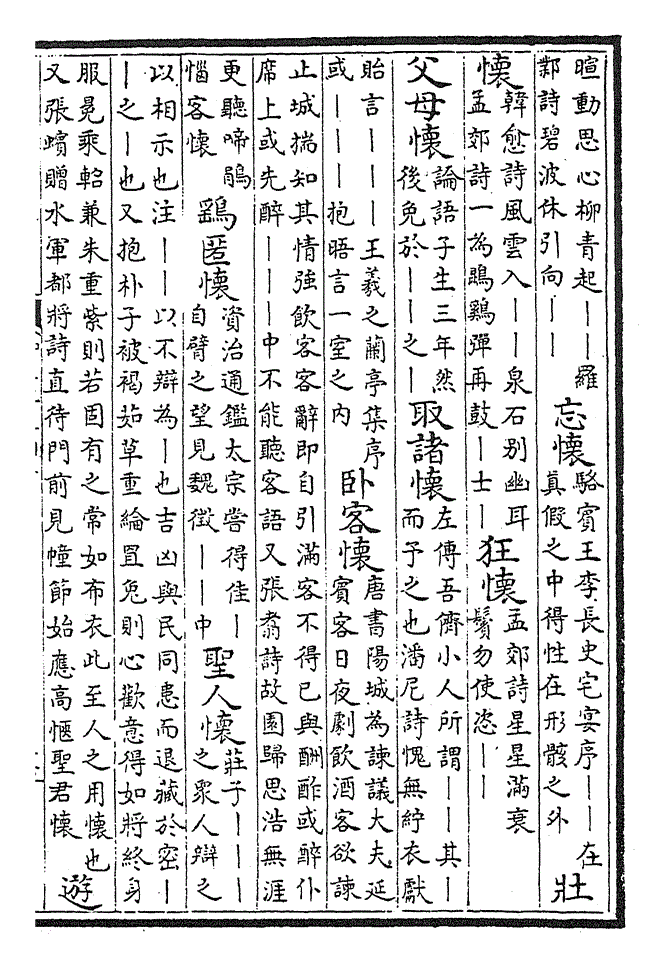 暄動思心柳青起——羅
鄴詩碧波休引向——
忘懷
駱賓王李長史宅宴序——在
真假之中得性在形骸之外
壯
懷
韓愈詩風雲入——泉石别幽耳
孟郊詩一為鵾鷄彈再鼓—士—
狂懷
孟郊詩星星滿衰
鬢勿使恣——
父母懷
論語子生三年然
後免於——之—
取諸懷
左傳吾儕小人所謂——其—
而予之也潘尼詩愧無紵衣獻
貽言———王羲之蘭亭集序
或———抱晤言一室之内
卧客懷
唐書陽城為諫議大夫延
賓客日夜劇飲酒客欲諫
止城揣知其情強飲客客辭即自引滿客不得已與酬酢或醉仆
席上或先醉———中不能聽客語又張翥詩故園歸思浩無涯
更聽啼鵑
惱客懷
鷂匿懷
資治通鑑太宗嘗得佳—
自臂之望見魏徵——中
聖人懷
莊子———
之衆人辯之
以相示也注——以不辯為—也吉凶與民同患而退藏於密—
—之—也又抱朴子被褐茹草垂綸罝兔則心歡意得如將終身
服冕乘軺兼朱重紫則若固有之常如布衣此至人之用懷也
又張蠙贈水軍都將詩直待門前見幢節始應高愜聖君懷
遊